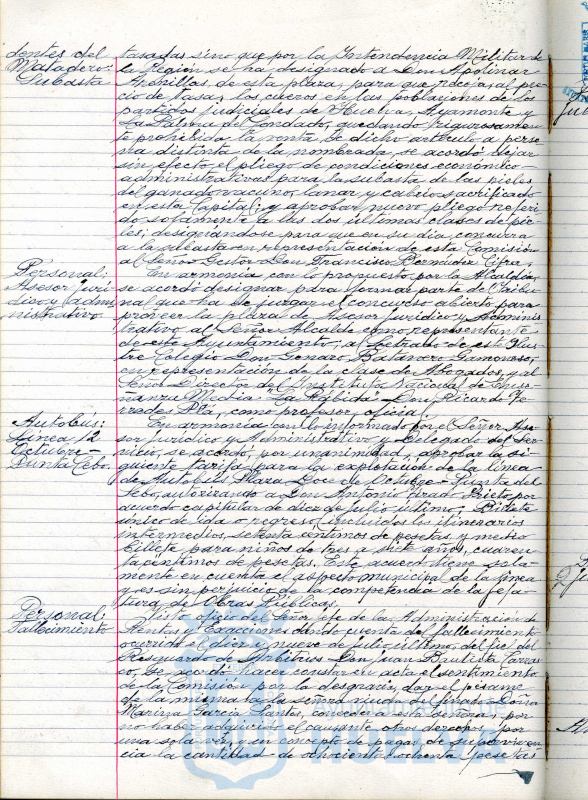 dentes del
Matadero:
Subasta
tasadas sino que por la Intendencia Militar de
la Región se ha designado a Don Apolinar
Arenillas, de esta plaza, para que recoja, al pre
cio de tasa, los cueros en las poblaciones de los
partidos judiciales de Huelva, Ayamonte y
La Palma del Condado, quedando rigurosamen
te prohibida la venta de dicho artículo a perso
na distinta de la nombrada, se acordó dejar
sin efecto el pliego de condiciones económico
administrativas para la subasta de las pieles
del ganado vacuno, lanar y cabrío sacrificado
en esta Capital; y aprobar nuevo pliego referi
do solamente a las dos últimas clases de pie
les; designándose para que en su día concurra
a la subasta en representación de esta Comisión
al Señor Gestor Don Francisco Bermúdez Cifra.
Personal:
Asesor Jurí
dico y Admi
nistrativo
En armonía con lo propuesto por la Alcaldía,
se acordó designar para formar parte del Tribu
nal que ha de juzgar el concurso abierto para
proveer la plaza de Asesor jurídico y Adminis
trativo al Señor Alcalde como representante
de este Ayuntamiento; al Letrado de este Ilus
tre Colegio Don Genaro Batanero Gamonoso,
en representación de la clase de Abogados, y al
Señor Director del Instituto Nacional de Ense
ñanza Media "La Rábida" Don Ricardo Te
rrades Plá, como profesor oficial.
Autobús:
Línea 12
Octubre-
Punta Sebo.
En armonía con lo informado por el Señor Ase
sor Jurídico y Administrativo y Delegado del Ser
vicio, se acordó, por unanimidad, aprobar la si
guiente tarifa para la explotación de la línea
de Autobús Plaza Doce de Octubre-Punta del
Sebo, autorizando a Don Antonio Tirado Prieto por
acuerdo capitular de diez de julio último: Billete
único de ida o regreso incluidos los itinerarios
intermedios, setenta céntimos de pesetas, y medio
billete para niños de tres a siete años, cuaren
ta céntimos de pesetas. Este acuerdo tiene sola
mente en cuenta el aspecto municipal de la línea
y es sin perjuicio de la competencia de la Jefa
tura de Obras Públicas.
Personal:
Fallecimiento
Visto oficio del Señor Jefe de la Administración de
Rentas y Exacciones dando cuenta del fallecimiento
ocurrido el diez y nueve de julio último, del fiel del
Resguardo de Arbitrios Don Juan Bautista Carras
co, se acordó hacer constar en acta el sentimiento
de la Comisión por la desgracia, dar el pésame
de la misma a la señora viuda e hijos Doña
Marina García Santos, conceder a esta señora, por
no haber adquirido el causante otro derecho, por
una sola vez, y en concepto de pagas de superviven
cia la cantidad de ochocientos ochenta pesetas
Ayuntamiento de
HUELVA